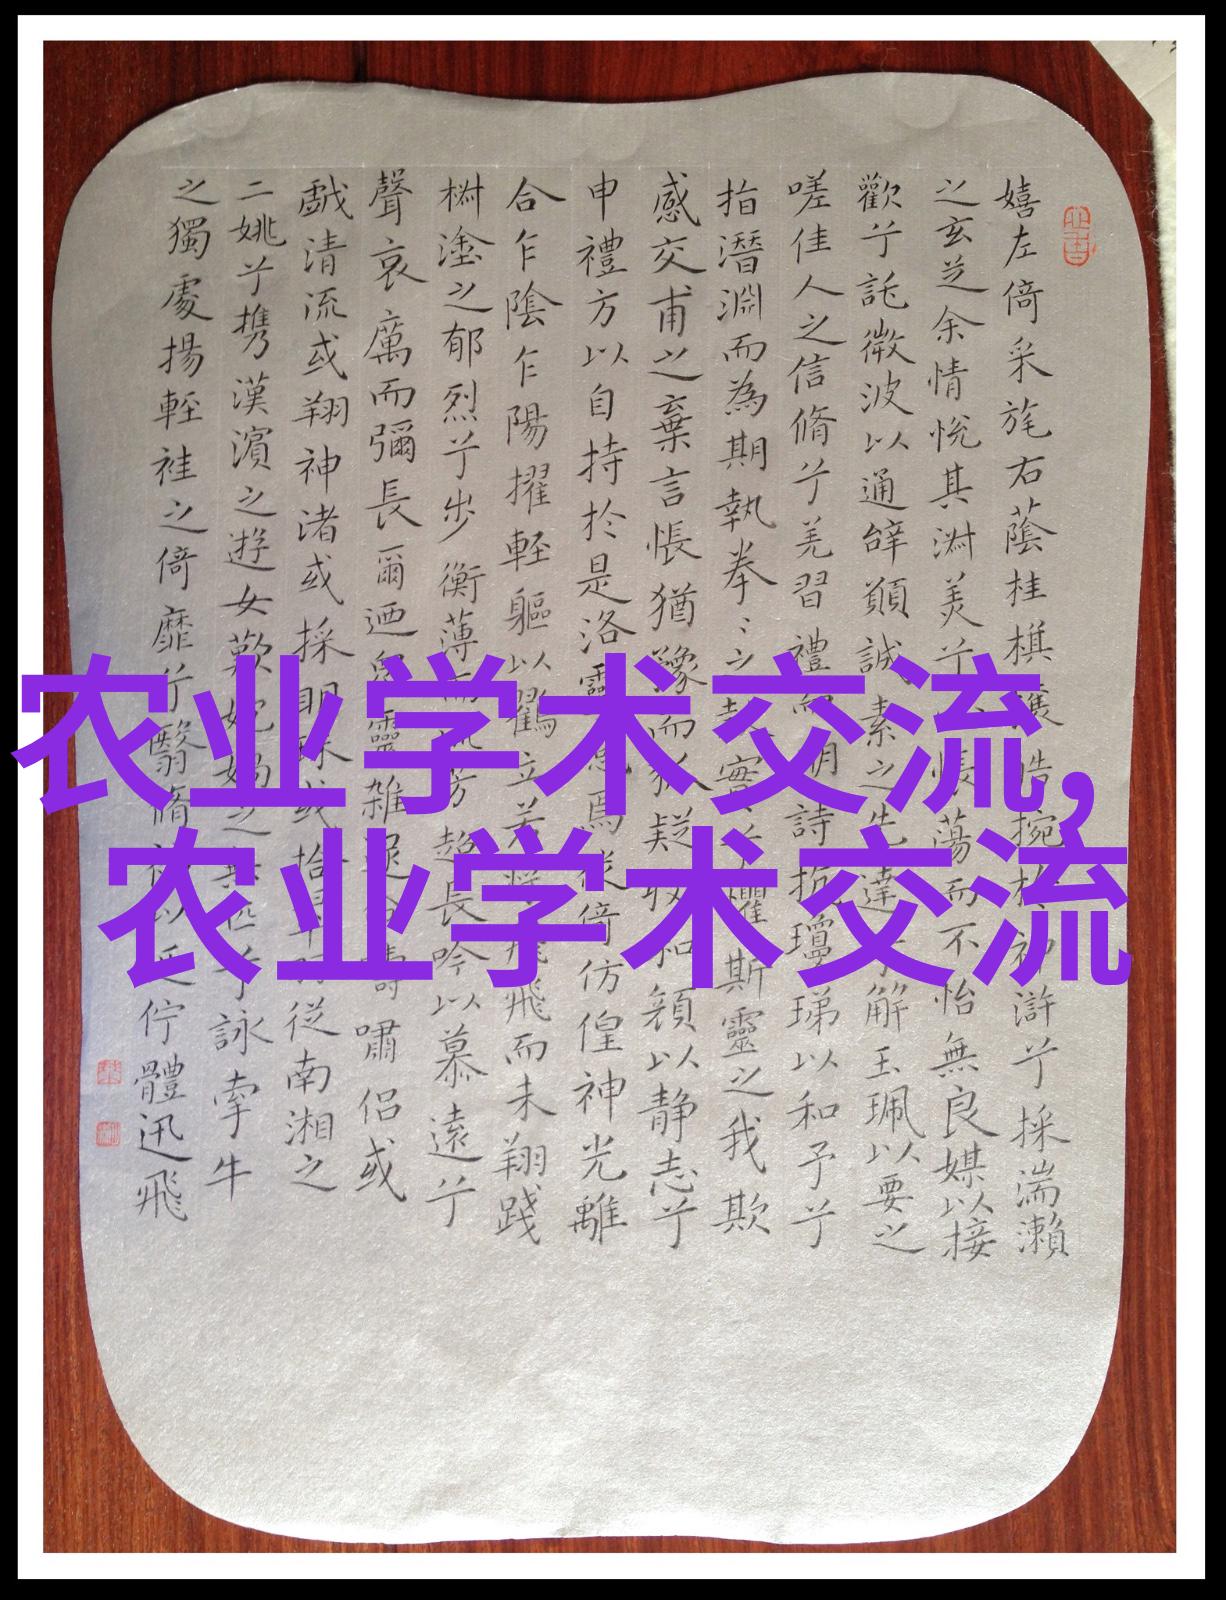 农业学术交流,
农业学术交流
嬉左倚采旄右蔭桂棋皓捥於神滸兮採湍瀨
之玄芝余情悅其淑美兮蕩而不怡無良媒以接
歡兮託微波以通辝願誠素之先達兮解玉珮以要之
嗟佳人之信脩兮羌習禮明詩抗瓊珶以和予兮
指潛淵而為期執拳〻之實兮懼斯靈之我欺
感交甫之棄言悵猶豫而狐疑收和顔以静志兮
申禮方以自持於是洛靈焉徙倚仿偟神光離
合乍陰乍陽擢輕軀以鶴立若將飛而未翔踐
椒塗之郁烈兮步衡薄而流芳超長吟以慕遠兮
聲哀厲而彌長爾迺衆靈雜遝命儔嘯侶或
戲清流或翔神渚或採明珠或拾從南湘之
二姚兮携漢濱之遊女歎媧之無匹兮詠牽牛
之獨處揚輕袿之倚靡兮翳脩以延佇體迅飛